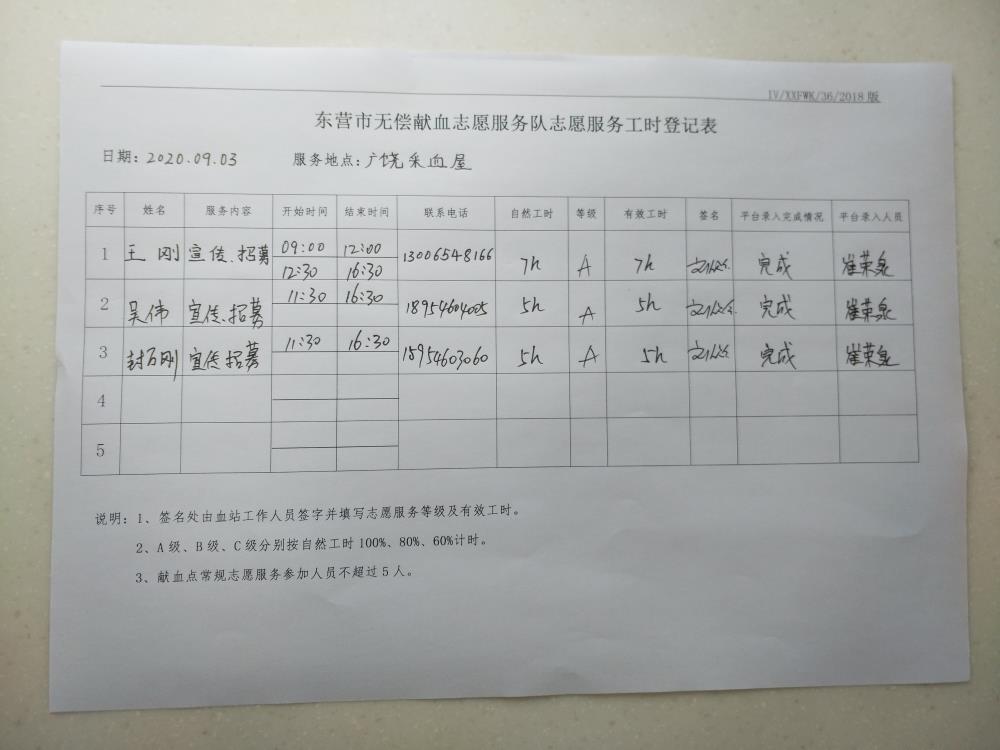 IV/XXFWK/36/2018版
东营市无偿献血志愿服务队志愿服务工时登记表
日期：2020.09.03 服务地点：广饶采血屋
序号 姓名 服务内容 开始时间 结束时间 联系电话 自然工时 等级 有效工时 签名 平台录入完成情况 平台录入人员
1 王刚 宣传、招募 09:00 12:00 13006548166 7h A 7h 完成 崔荣泉
12:30 16:30
2 吴伟 宣传、招募 11:30 16:30 18954604005 5h A 5h 完成 崔荣泉
3 封万刚 宣传招募 11:30 16:30 18954603060 5h A 5h 完成 崔荣泉
4
5
说明：1、签名处由血站工作人员签字并填写志愿服务等级及有效工时。
2、A级、B级、C级分别按自然工时100%、80%、60%计时。
3、献血点常规志愿服务参加人员不超过5人。